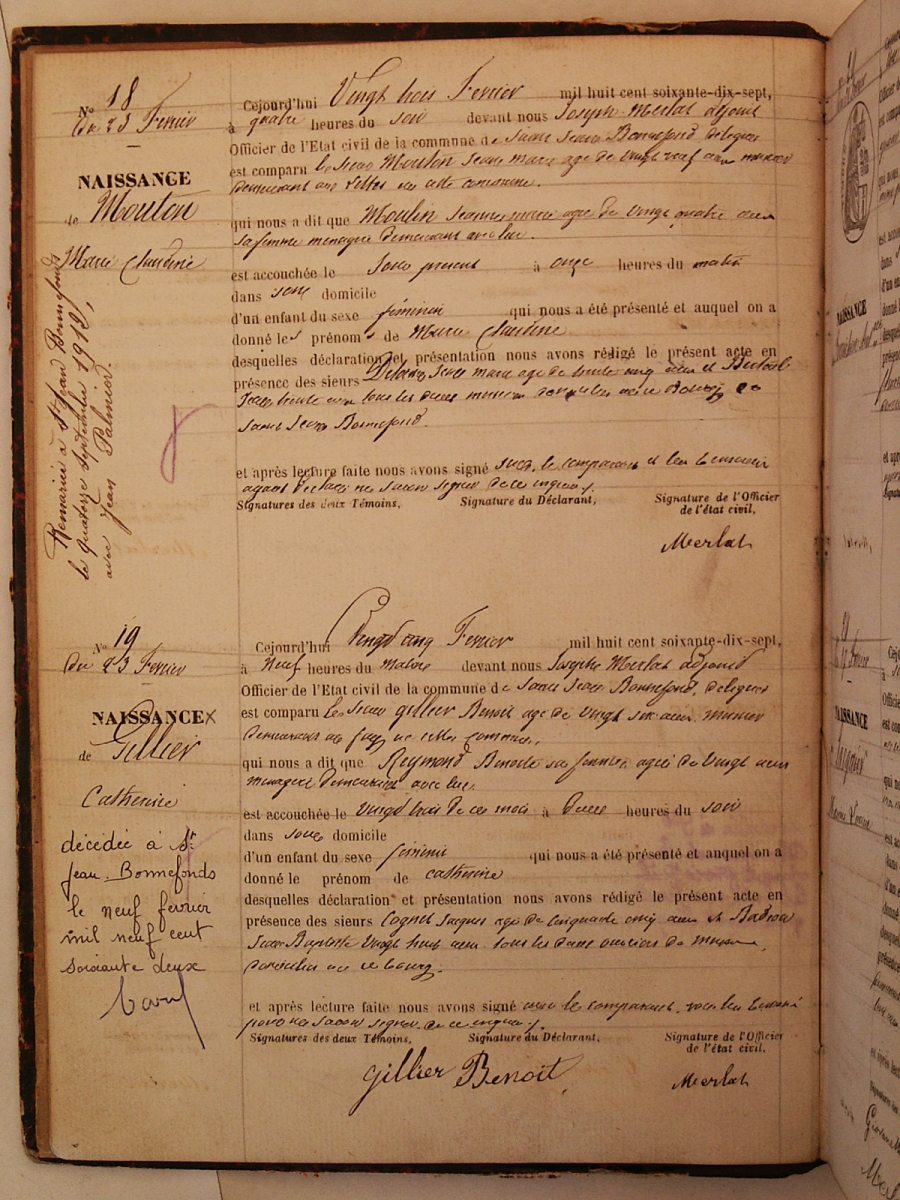 N° 18
du 23 Fevrier
NAISSANCE
de Mouton
Marie Claudine
Remariée à St Jean Bonnefonds
le quatorze Septembre 1918,
avec Jean Palmier.
Cejourd'hui Vingt trois Fevrier mil huit cent soixante-dix-sept,
à quatre heures du soir devant nous Joseph Merlat adjoint
Officier de l'Etat civil de la commune de Saint Jean Bonnefond délégué
est comparu le sieur Mouton Jean marie age de vingt neuf ans mineur
demeurant aux en cette commune.
qui nous a dit que Moulin Jeanne marie age de vingt quatre ans
sa femme menagere demeurant avec lui.
est accouchée le jour present à onze heures du matin
dans son domicile
d'un enfant du sexe féminin qui nous a été présenté et auquel on a
donné les prénoms de Marie Claudine
desquelles déclaration et présentation nous avons rédigé le présent acte en
présence des sieurs Jean marie age de trente cinq ans et
Jean trente ans tous les deux mineurs domiciliés au Bourg de
Saint Jean Bonnefond.
et après lecture faite nous avons signé seul, le comparant et les temoins
ayant déclaré ne savoir signer de ce enquis.
Signatures des deux Témoins, Signature du Déclarant, Signature de l'Officier
de l'état civil,
Merlat
N° 19
du 23 Fevrier
NAISSANCE
de Gillier
Catherine
décédée à St
Jean-Bonnefonds
le neuf février
mil neuf cent
soixante deux
Cejourd'hui Vingt cinq Fevrier mil huit cent soixante-dix-sept,
à Neuf heures du matin devant nous Josephe Merlat adjoint
Officier de l'Etat civil de la commune de Saint Jean Bonnefond, délégué
est comparu le sieur Gillier Benoit age de vingt six ans, mineur
demeurant au fay en cette commune,
qui nous a dit que Reymond Benoite sa femme, agée de vingt ans
menagere demeurant avec lui.
est accouchée le vingt trois de ce mois à deux heures du soir
dans son domicile
d'un enfant du sexe feminin qui nous a été présenté et auquel on a
donné le prénom de catherine
desquelles déclaration et présentation nous avons rédigé le présent acte en
présence des sieurs Cognet Jacques age de cinquante cinq ans et
Jean Baptiste vingt huit ans tous les deux ouvriers de mine,
domiciliés au ce bourg.
et après lecture faite nous avons signé avec le comparant, non les temoins
pour ne savoir signer de ce enquis.
Signatures des deux Témoins, Signature du Déclarant, Signature de l'Officier
de l'état civil,
Gillier Benoit
Merlat
NAISSANCE
NAISSANCE